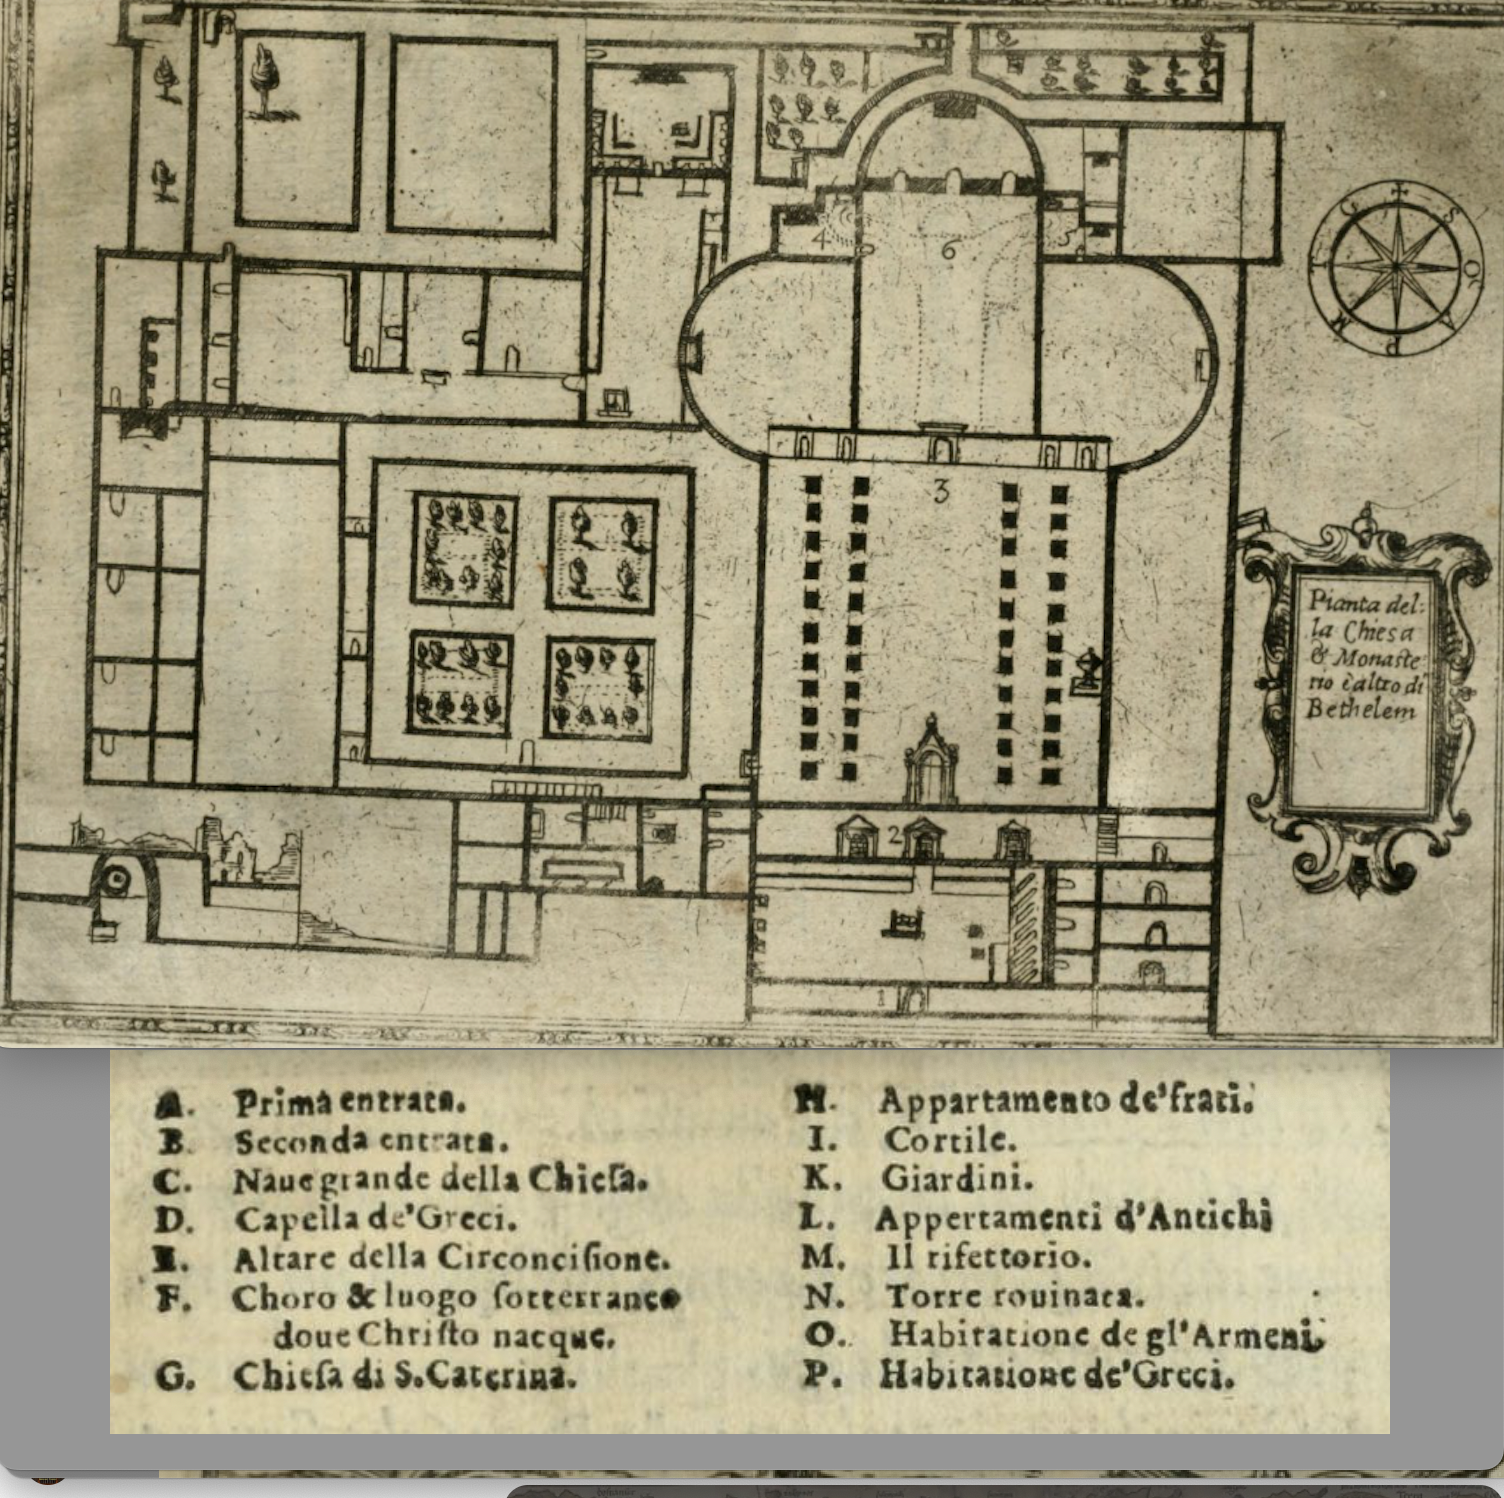 4
6
3
Pianta del:
la Chiesa
& Monaste
rio è altro di
Bethelem
2
1
A. Prima entrata.
B. Seconda entrata.
C. Naue grande della Chieſa.
D. Capella de'Greci.
E. Altare della Circonciſione.
F. Choro & luogo ſotterraneo
doue Chriſto nacque.
G. Chieſa di S. Caterina.
H. Appartamento de'frati.
I. Cortile.
K. Giardini.
L. Appertamenti d'Antichi
M. Il rifettorio.
N. Torre rouinata.
O. Habitatione de gl'Armeni.
P. Habitatione de'Greci.